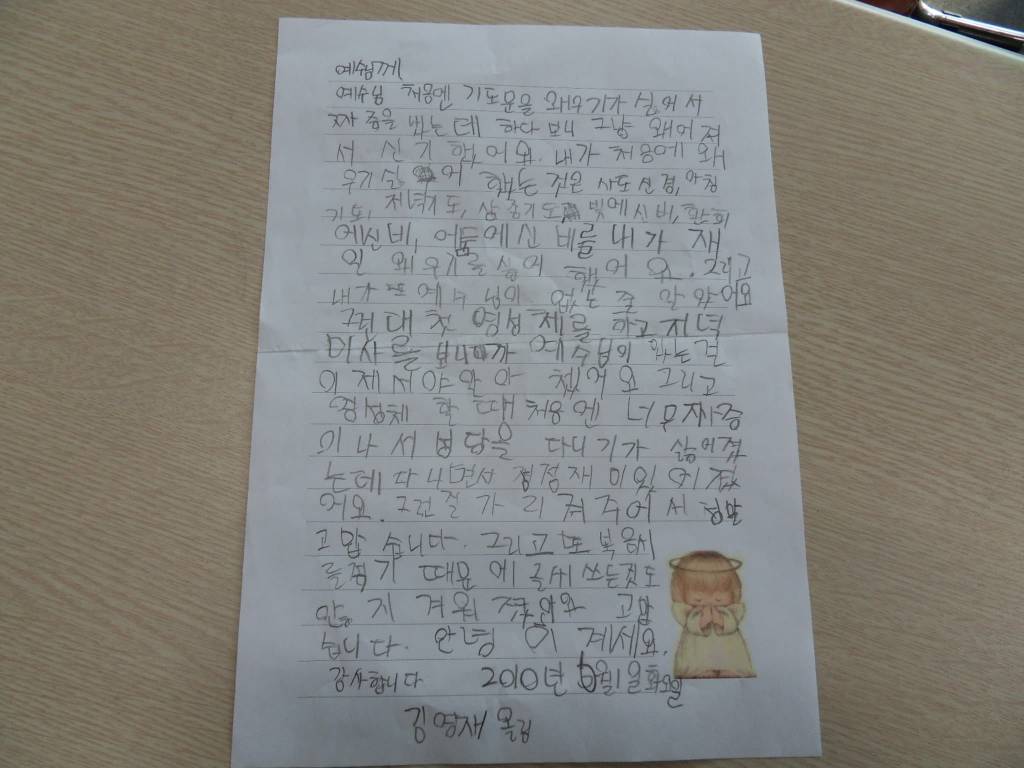 예수님께
예수님 처음엔 기도문을 왜우기가 싫어서
짜증을 냈는데 하다보니 그냥 왜어져
서 신기했어요. 내가 처음에 왜
우기 싫어 했는 것은 사도신경, 아침
기도, 저녁기도, 삼종기도 빛에신비, 환희
에신비, 어둠에신비를 내가 재
일 왜우기를 싫어 했어요. 그리고
내가 또 예수님의 없는 줄 알았어요
그런대 첫영성체를 하고 저녁
미사를 보니까 예수님이 하는걸
이제서야 알아 챘어요 그리고
영성체 할때 처음엔 너무 짜증
이나서 성당을 다니기가 싫어졌
는데 다니면서 점점 재미있어졌
어요. 그런걸 가리켜 주어서 정말
고맙습니다. 그리고 또 복음서
를적기 때문에 글씨 쓰는것도
안 지겨워 졌어요 고맙
습니다. 안녕이 계세요.
감사합니다 2010년 6월1일화요일
김영재 올림